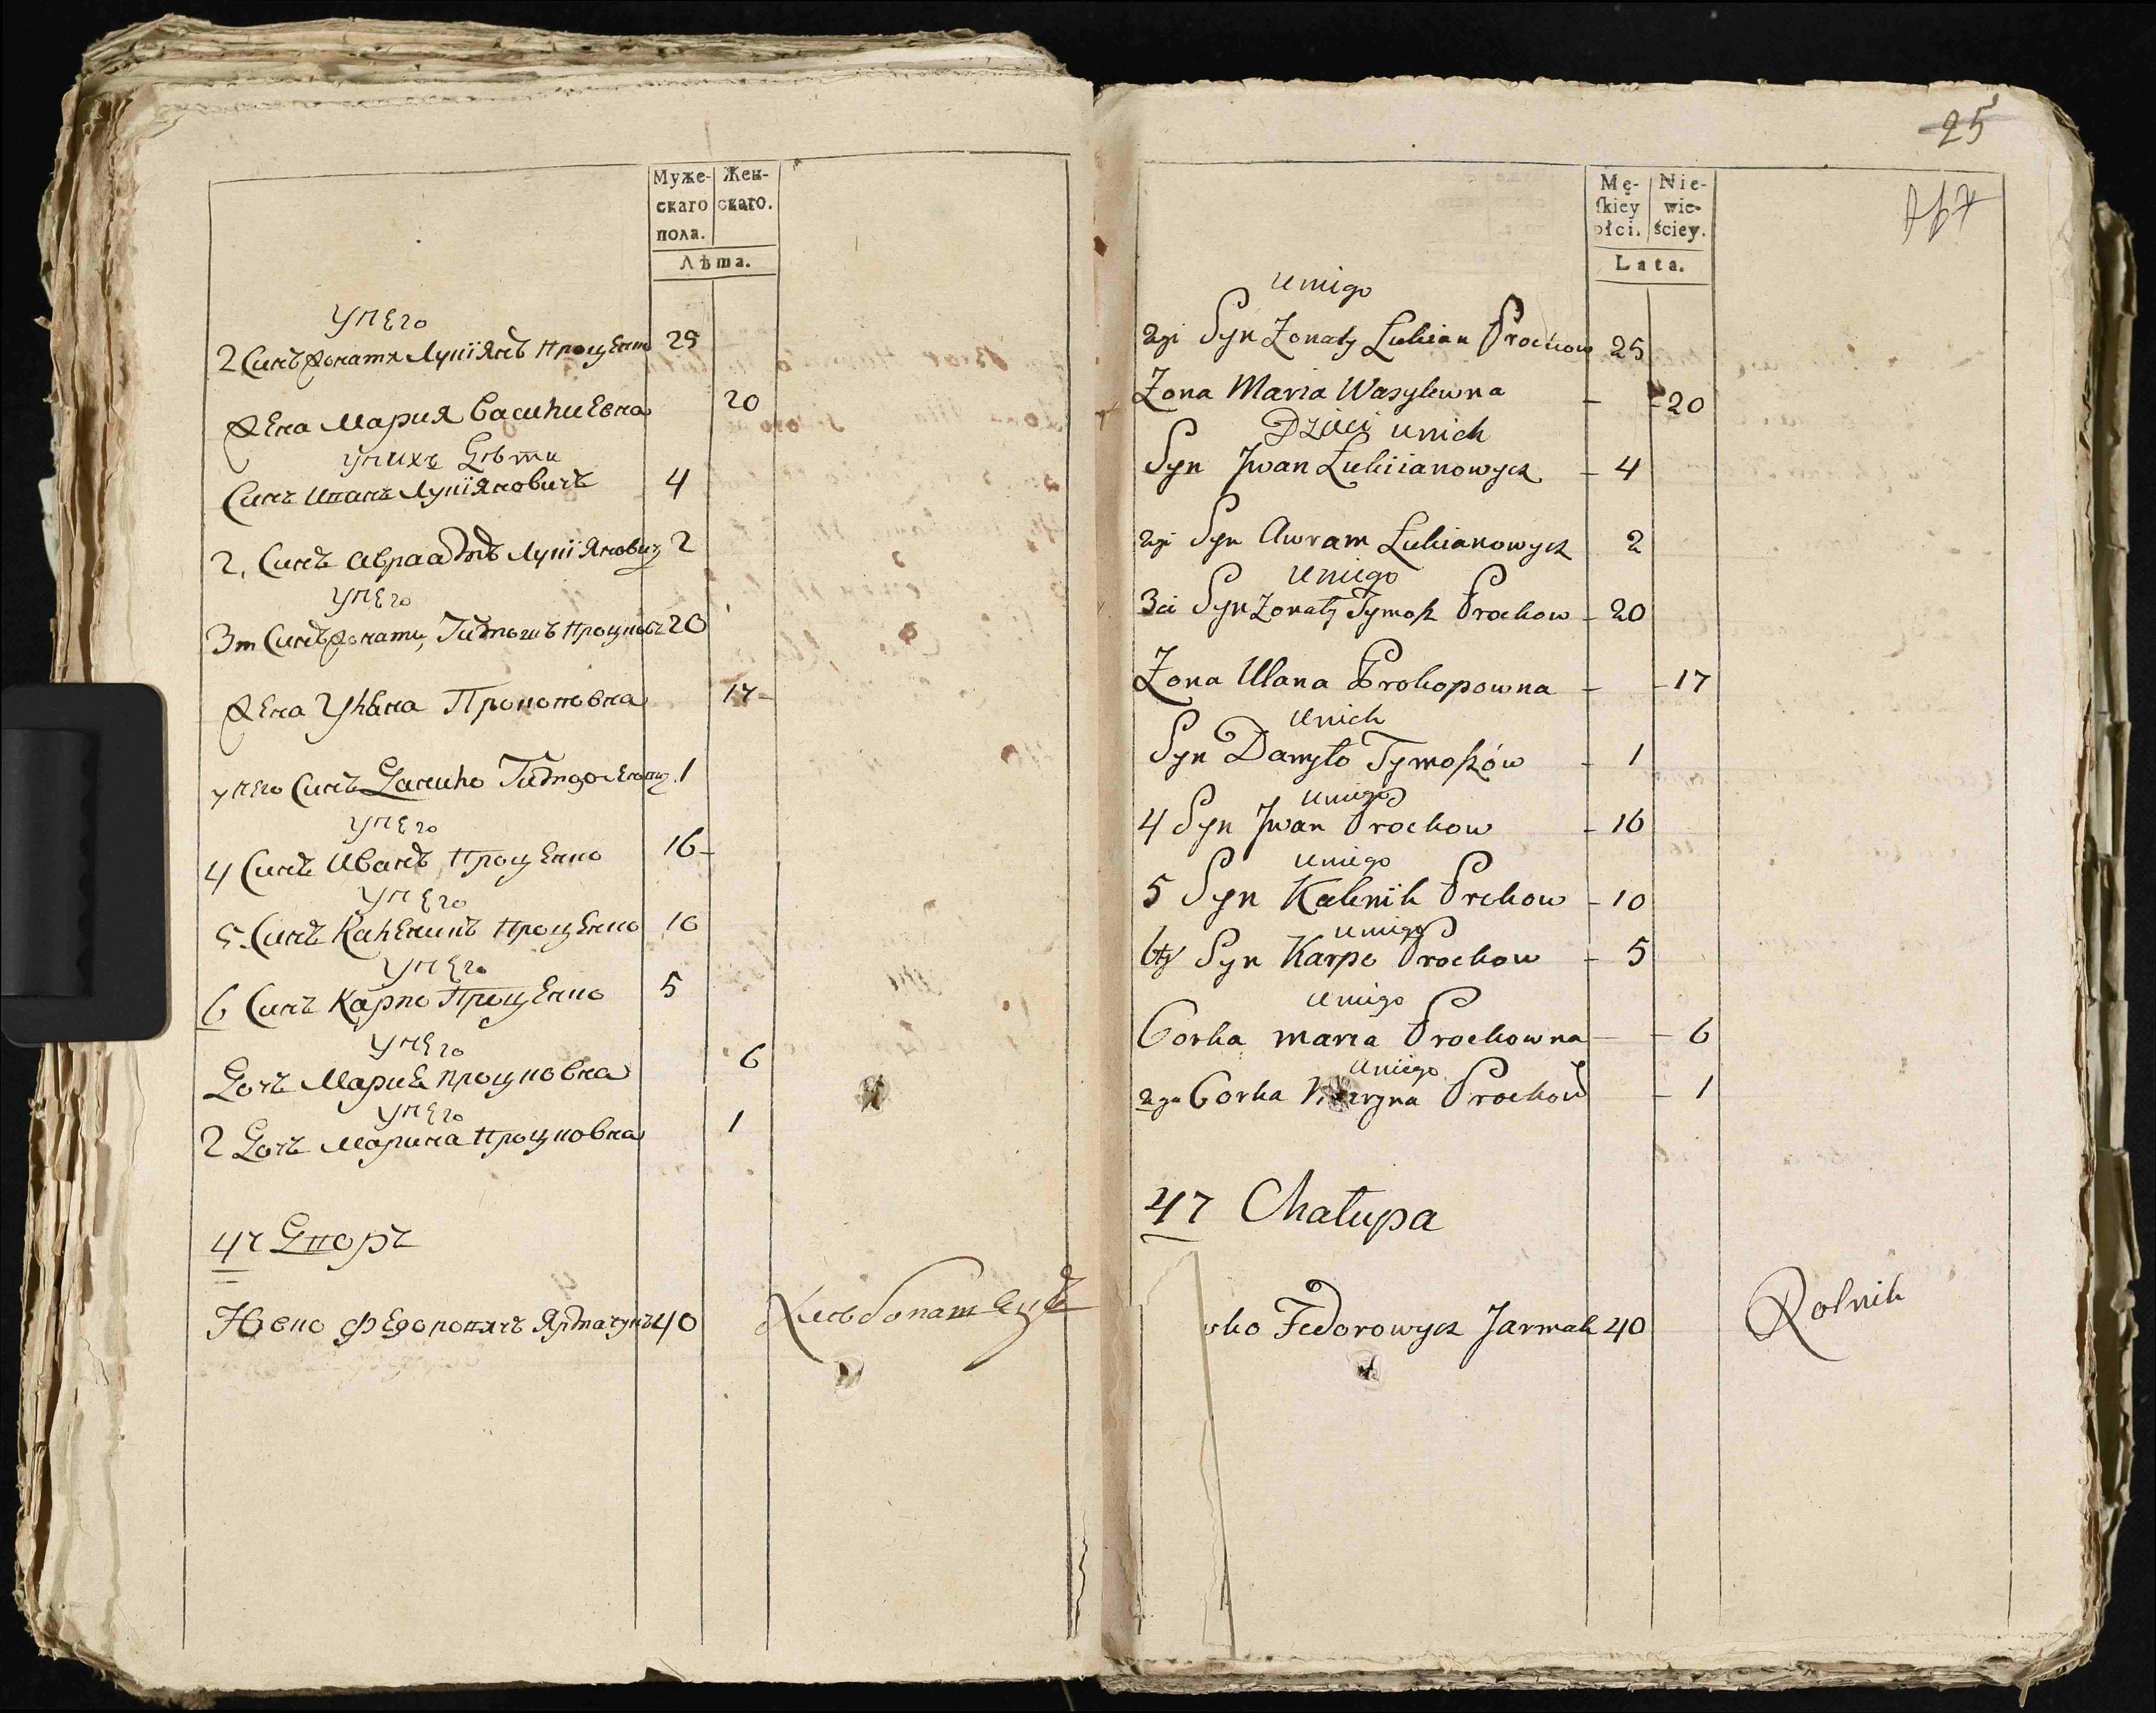 Муже-
скаго
пола.
Жен-
скаго.
Лѣта.
Унего
2 Синъ жонати Лукіянъ Проценко 25
Жена Мария Василиевна 20
Унихъ Дѣти
Синъ Иванъ Лукіяновичъ 4
2, Синъ Авраамъ Лукіяновичъ 2
Унего
3т Синъ жонати, Тимошъ Процковъ 20
Жена Уляна Прокоповна 17
унего Синъ Данило 1
Унего
4 Синъ Иванъ Проценко 16
Унего
5. Синъ Каленикъ Проценко 10
Унего
6 Синъ Карпо Проценко 5
Унего
Дочъ Мария Процковна 6
Унего
2 Дочъ Марина Процковна 1
47 Дворъ
Юско Федоровичъ Ярмачукъ 40
Хлебопашецъ
25
Mę-
ſkiey
płci.
Nie-
wie-
ściey.
Lata.
uniego
2gi Syn Żonaty Łukian Prockow 25
Żona Maria Wasylewna - - 20
Dzieci unich
Syn Jwan Łukiianowycz - 4
2gi Syn Awram Łukianowycz 2
uniego
3ci Syn Żonaty Tymosz Prockow - 20
Żona Ulana Prokopowna - - 17
Unich
Syn Danyło Tymoszów - 1
uniego
4 Syn Jwan Prockow - 16
uniego
5 Syn Kalenik Prckow - 10
uniego
6ty Syn Karpo Prockow - 5
uniego
Corka maria Prockowna - - 6
uniego
2ga Corka Maryna Prockow - 1
47 Chałupa
sko Fedorowycz Jarmak 40
Rolnik